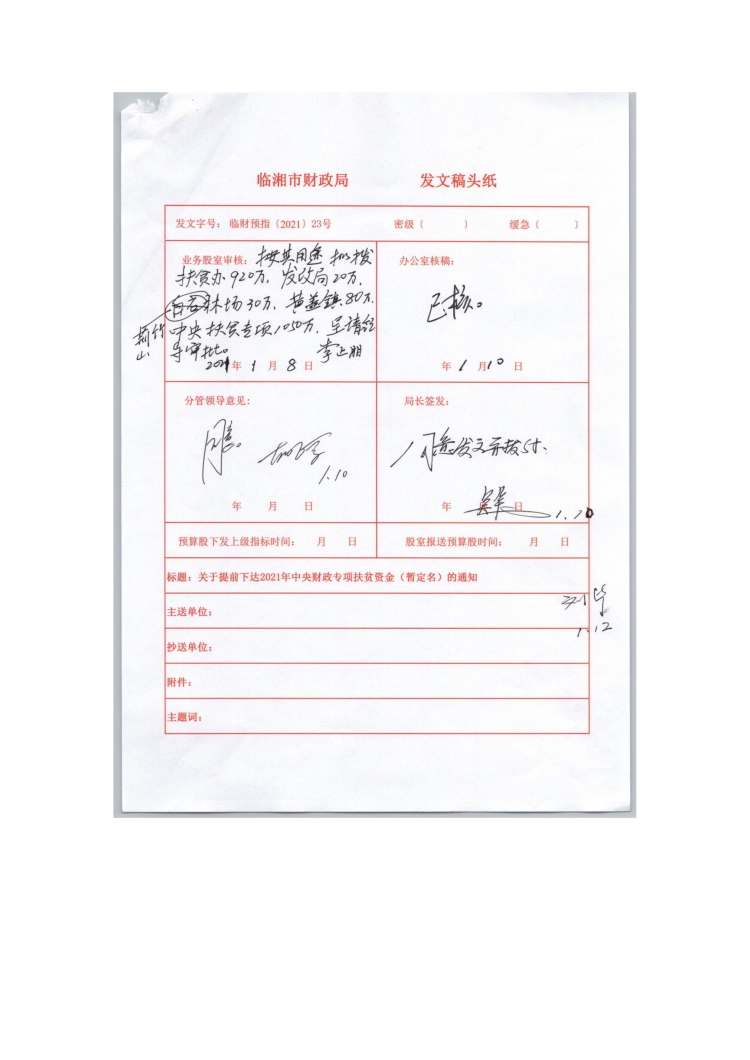 临湘市财政局 发文稿头纸
发文字号：临财预指〔2021〕23号 密级〔 〕 缓急〔 〕
业务股室审核：按其用途 拟拨
扶贫办920万，发改局20万，
林场30万，黄盖镇80万，
中央扶贫专项1050万，呈请领
导审批。 李正明
2021年 1 月 8 日
办公室核稿：
已核。
年 1 月 10 日
分管领导意见：
同意。
1.10
年 月 日
局长签发：
同意发文并拨付。
年 月 日
1.10
预算股下发上级指标时间： 月 日
股室报送预算股时间： 月 日
标题：关于提前下达2021年中央财政专项扶贫资金（暂定名）的通知
1.12
主送单位：
抄送单位：
附件：
主题词：